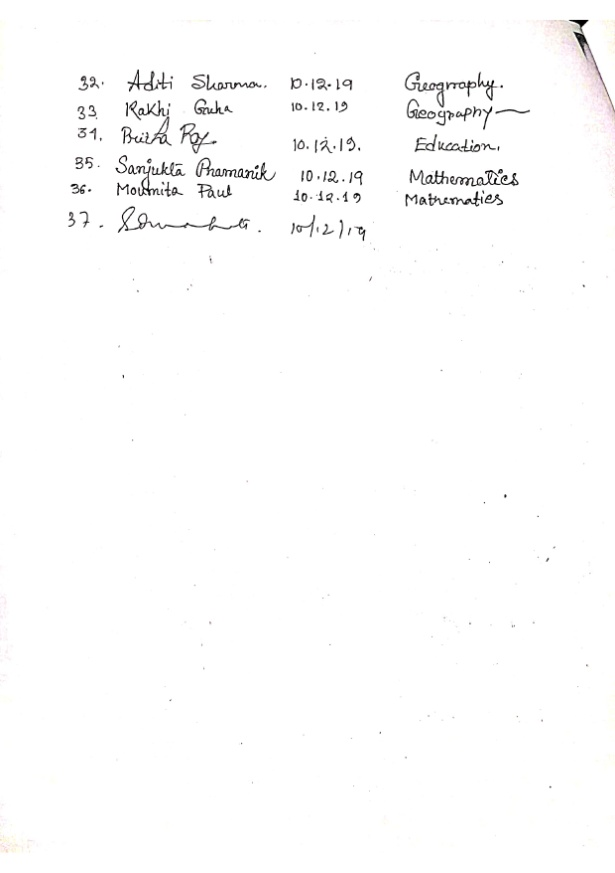 32. Aditi Sharma. 10.12.19 Geography.
33. Rakhi Guha 10.12.19 Geography
34. Roy 10.12.19. Education.
35. Sanjukta Pramanik 10.12.19 Mathematics
36. Moumita Paul 10.12.19 Mathematics
37. 10/12/19